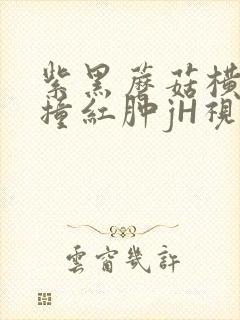 紫黑蘑菇横
撞紅肿jH視
雲窗幾許